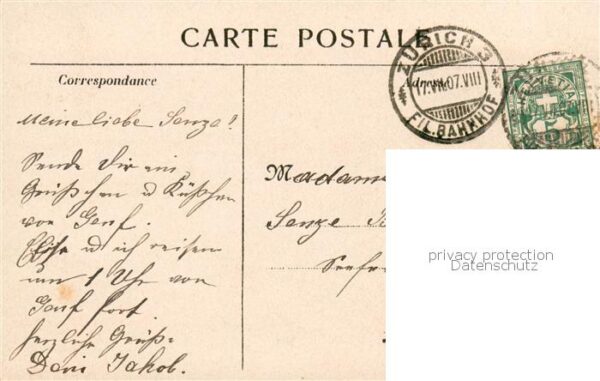 CARTE POSTALE
Correspondance
Adresse
ZÜRICH 3
17.VII.07.VIII
FIL. BAHNHOF
HELVETIA
Meine liebe Senze!
Sende Dir ein
Grüßchen u Küßchen
von Genf.
u ich reisen
um 1 Uhr von
Genf fort.
herzliche Grüße
Dein Jakob.
Madame
Senze
Seefe
privacy protection
Datenschutz